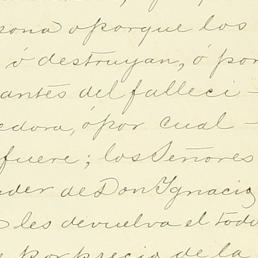 sona o porque los
ó destruyan, ó por
antes del falleci-
edora, ó por cual-
fuere; los Señores
der de Don Ignacio,
les devuelva el todo
por precio de la